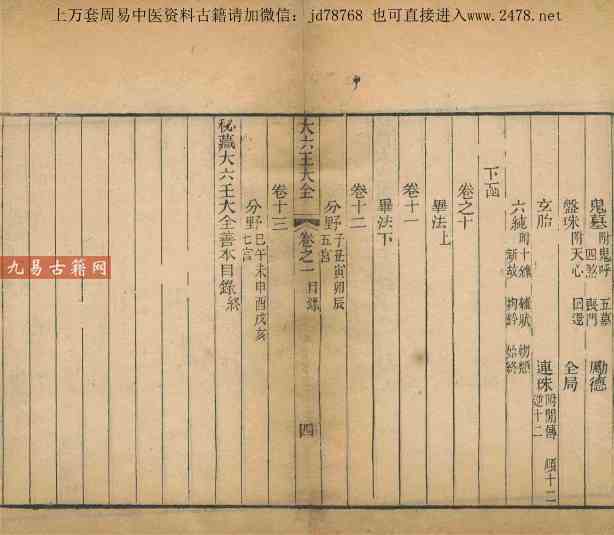 上万套周易中医资料古籍请加微信：jd78768 也可直接进入www.2478.net
鬼墓 附鬼呼 五墓 四煞 喪門 勵德
盤珠 附天心 回還 全局
玄胎 連珠 附間傳 順十二 逆十二
六純 附十雜 物類 新故 始終
下函
卷之十
畢法上
卷十一
畢法下
卷十二
分野 子丑寅卯辰 五宮
大六壬大全 卷之一 目錄 四
卷十三
分野 巳午未申酉戌亥 七宮
秘藏大六壬大全善本目錄終
九易古籍网